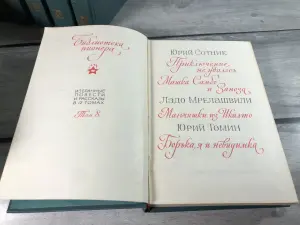 Библиотека
пионера
ИЗБРАННЫЕ
ПОВЕСТИ
И РАССКАЗЫ
В 12 ТОМАХ
Том 8
ЮРИЙ СОТНИК
Приключение
не удалось
Машка Самбо
и Заноза
ЛАДО МРЕЛАШВИЛИ
Мальчишки из Икалто
ЮРИЙ ТОМИН
Борька, я и невидимка